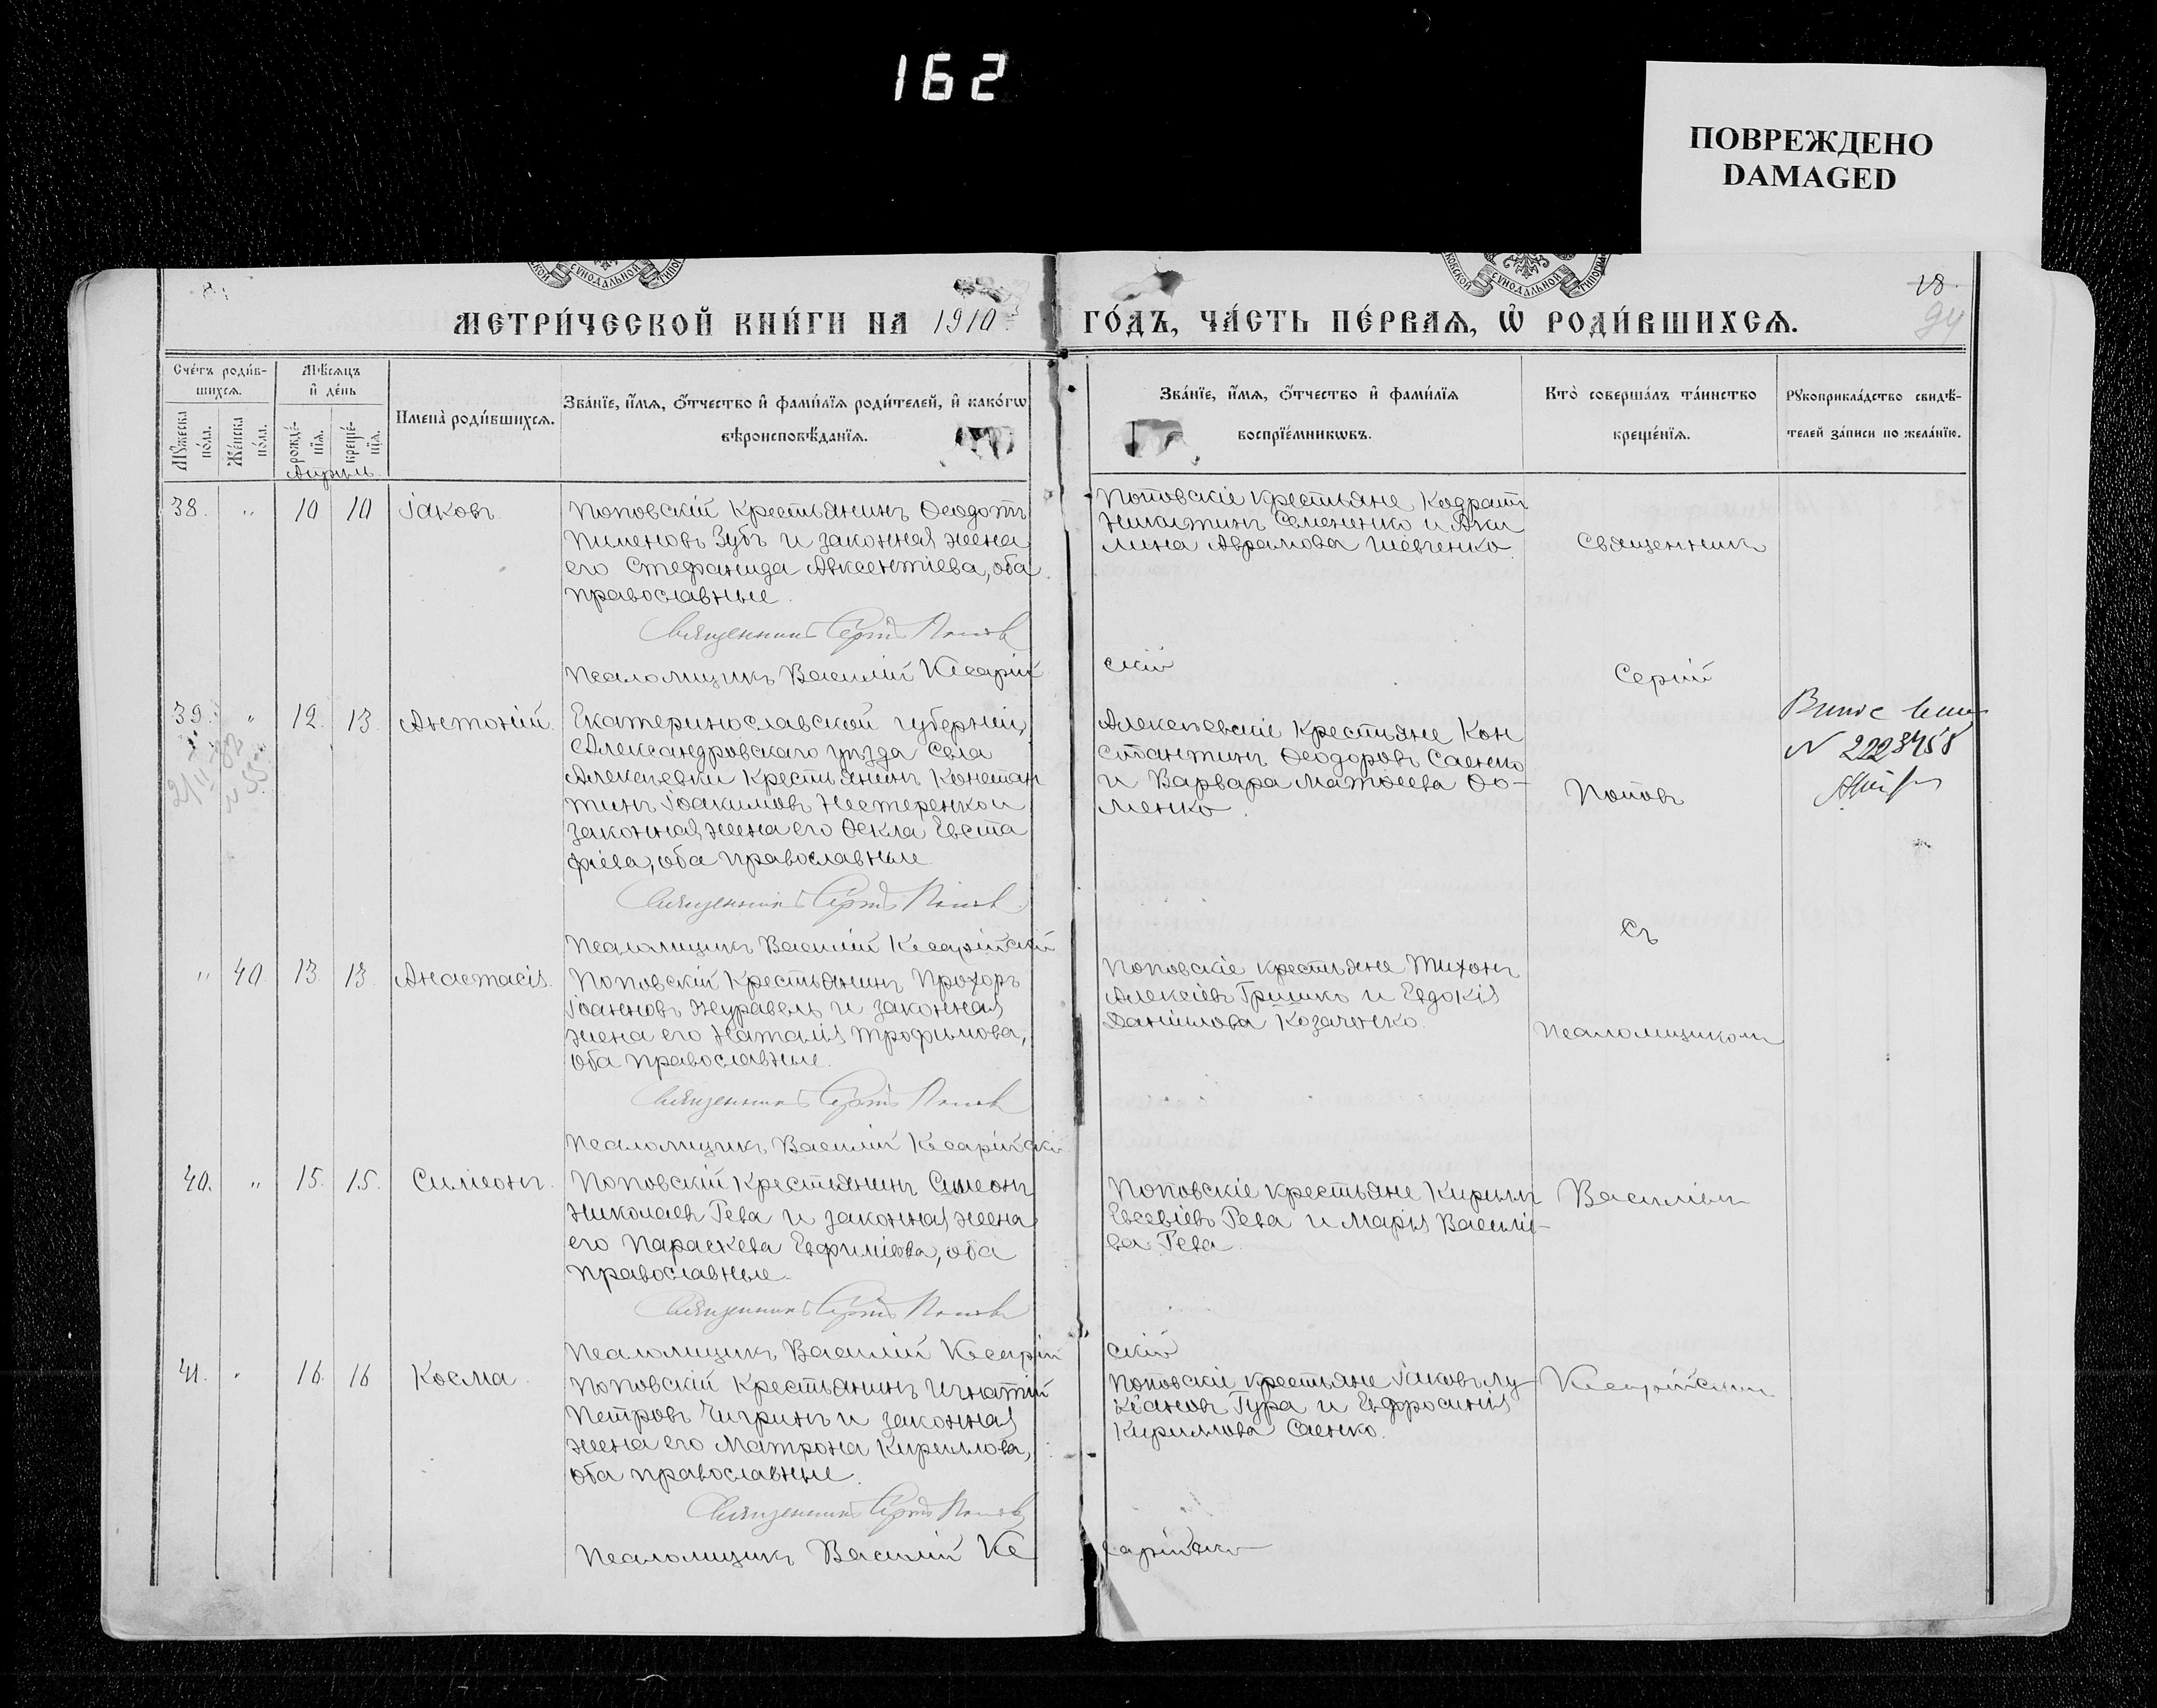 162
ПОВРЕЖДЕНО
DAMAGED
СѴНОДАЛЬНОЙ
МОСКОВСКОЙ СѴНОДАЛЬНОЙ ТИПОГР
18.
94
МЕТРИ́ЧЕСКОЙ КНИ́ГИ НА 1910 ГО́ДЪ, ЧА́СТЬ ПЕ́РВАѦ, Ѡ҆ РОДИ́ВШИХСѦ.
Сче́тъ роди́в-
шихсѧ.
Мꙋ́жеска по́ла.
Же́нска по́ла.
Мѣ́сѧцъ
и҆ де́нь
рожде́-
нїѧ.
креще́-
нїѧ.
Апрѣль
Имена̀ роди́вшихсѧ.
Зва́нїе, и҆́мѧ, ѻ҆́тчество и҆ фами́лїѧ роди́телей, и҆ како́гѡ
вѣроисповѣ́данїѧ.
Зва́нїе, и҆́мѧ, ѻ҆́тчество и҆ фами́лїѧ
воспрїе́мникѡвъ.
Кто̀ соверша́лъ та́инство
креще́нїѧ.
Рꙋкоприкла́дство свидѣ́-
телей за́писи по жела́нїю.
38. " 10 10 Іаковъ
Поповскій Крестьянинъ Ѳеодотъ
Пименовъ Зубъ и законная жена
его Стефанида Авксентіева, оба
православные.
Священникъ Сергій Поповъ
Псаломщикъ Василій Кесарій
скій
Поповскіе крестьяне Кодратъ
Никитинъ Семененко и Аки
лина Аврамова Шевченко
Священникъ
Сергій
39. " 12. 13. Антоній.
Екатеринославской губерніи,
Александровскаго уѣзда Села
Алексѣевки Крестьянинъ Констан
тинъ Іоакимовъ Нестеренко и
законная жена его Ѳекла Евста
фіева, оба православные.
Священникъ Сергій Поповъ
Псаломщикъ Василій Кесарійскій
Алексѣевскіе Крестьяне Кон
стантинъ Ѳеодоровъ Саенко
и Варвара Матѳеева Ѳо-
менко.
Поповъ
N 2228458
Съ
" 40 13. 13. Анастасія.
Поповскій Крестьянинъ Прохоръ
Іоанновъ Журавель и законная
жена его Наталія Трофимова,
оба православные.
Священникъ Сергій Поповъ
Псаломщикъ Василій Кесарійскій
Поповскіе крестьяне Тихонъ
Алексіевъ Гришко и Евдокія
Даніилова Козаченко.
Псаломщикомъ
40. " 15. 15. Симеонъ.
Поповскій Крестьянинъ Симеонъ
Николаевъ Рева и законная жена
его Параскева Евфиміева, оба
православные.
Священникъ Сергій Поповъ
Псаломщикъ Василій Кесарій
скій
Поповскіе крестьяне Кириллъ
Евсевіевъ Рева и Марія Василіе-
ва Рева.
Василіемъ
41. " 16. 16 Косма.
Поповскій Крестьянинъ Игнатій
Петровъ Чигринъ и законная
жена его Матрона Кириллова,
оба православные.
Священникъ Сергій Поповъ
Псаломщикъ Василій Ке
сарійскій
Поповскіе крестьяне Іаковъ Лу
кіановъ Гура и Евфросинія
Кириллова Саенко.
Кесарійскимъ